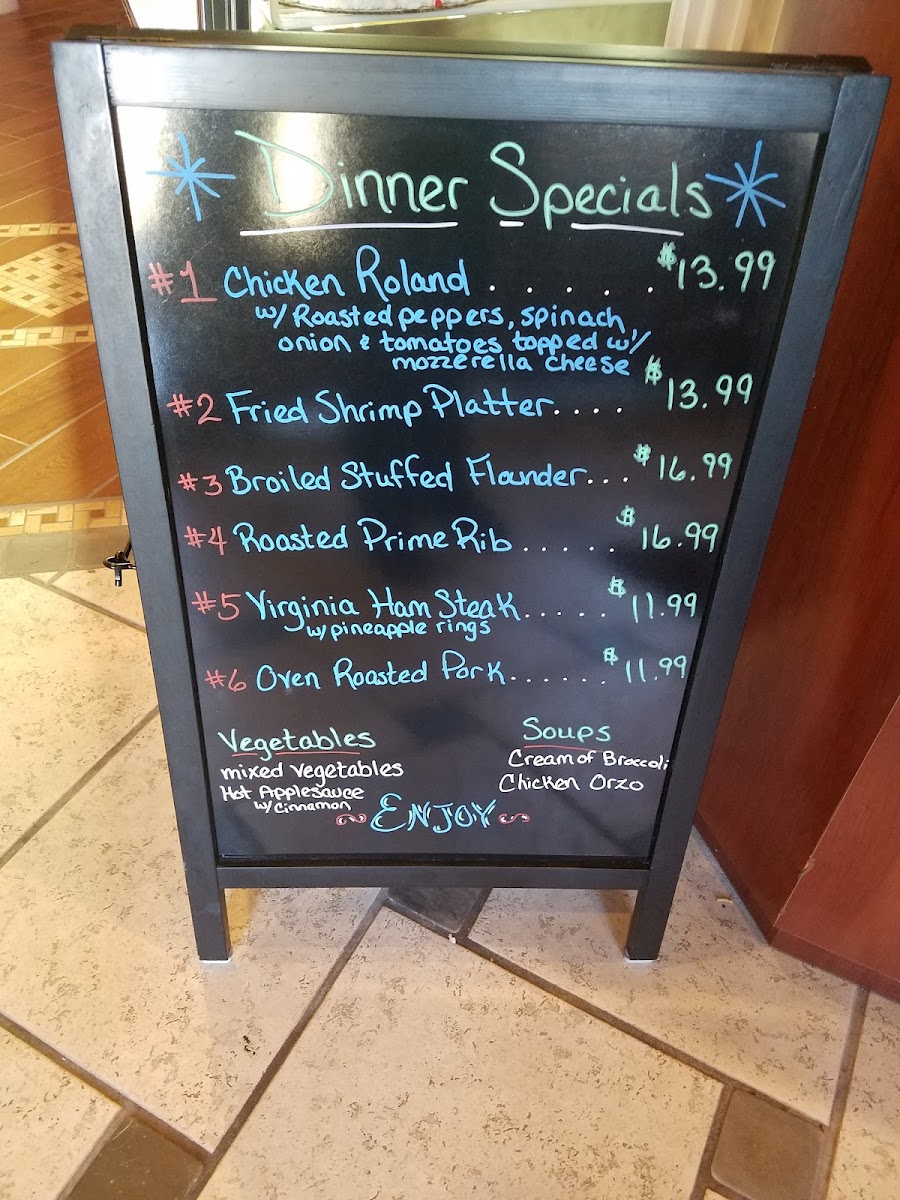 Dinner Specials
#1 Chicken Roland . . . . . . $13.99
w/ Roasted peppers, spinach
onion & tomatoes topped w/
mozzerella cheese
#2 Fried Shrimp Platter.... $13.99
#3 Broiled Stuffed Flounder... $16.99
#4 Roasted Prime Rib...... $16.99
#5 Virginia Ham Steak..... $11.99
w/ pineapple rings
#6 Oven Roasted Pork...... $11.99
Vegetables
mixed vegetables
Hot Applesauce
w/ Cinnamon
Soups
Cream of Broccoli
Chicken Orzo
ENJOY